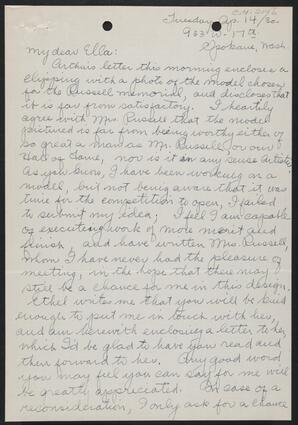 Tuesday, Ap. 14/30.
933 W. 17th
Spokane, Wash.
My dear Ella:
Arthur's letter this morning encloses a
clipping with a photo of the model chosen
for the Russell memorial, and discloses that
it is far from satisfactory. I heartily
agree with Mrs. Russell that the model
pictured is far from being worthy either of
so great a man as Mr. Russell or our
Hall of Fame, nor is it in any sense Artistic.
As you know, I have been working on a
model, but not being aware that it was
time for the competition to open, I failed
to submit my idea; I feel I am capable
of executing work of more merit and
finish, and have written Mrs. Russell,
whom I have never had the pleasure of
meeting, in the hope that there may
still be a chance for me in this design.
Ethel writes me that you will be kind
enough to put me in touch with her,
and am herewith enclosing a letter to her,
which I'd be glad to have you read and
then forward to her. Any good word
you may feel you can say for me will
be greatly appreciated. In case of a
reconsideration, I only ask for a chance